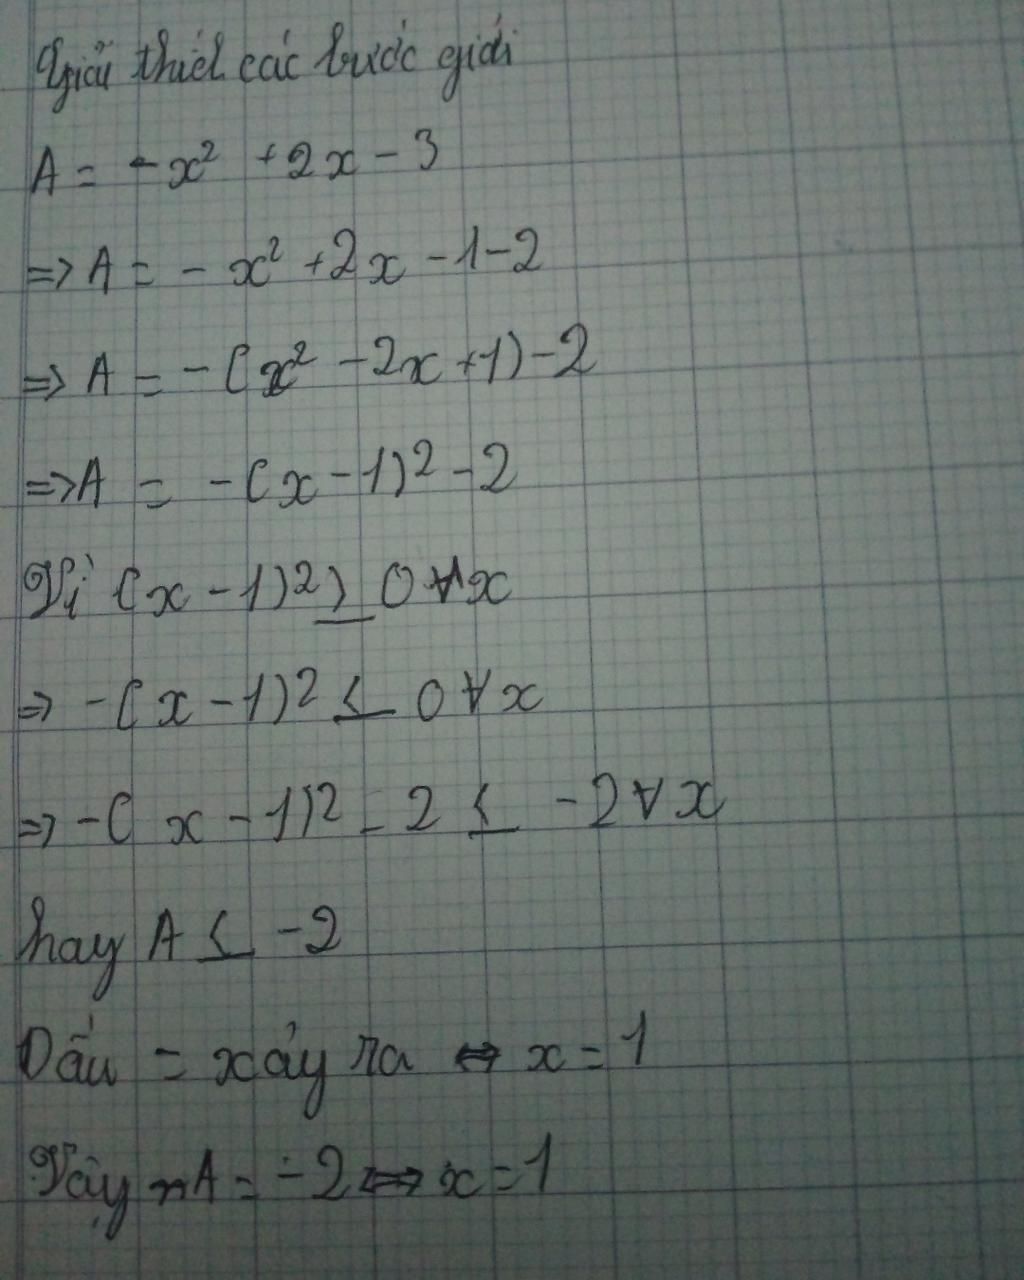 Giải thích các bước giải
A = -x² + 2x - 3
=> A = - x² + 2x - 1 - 2
=> A = - (x² - 2x + 1) - 2
=> A = - (x - 1)² - 2
Vì (x - 1)² ≥ 0 ∀x
=> - (x - 1)² ≤ 0 ∀x
=> - (x - 1)² - 2 ≤ -2 ∀x
hay A ≤ -2
Dấu = xảy ra ⇔ x = 1
Vậy A = -2 ⇔ x = 1